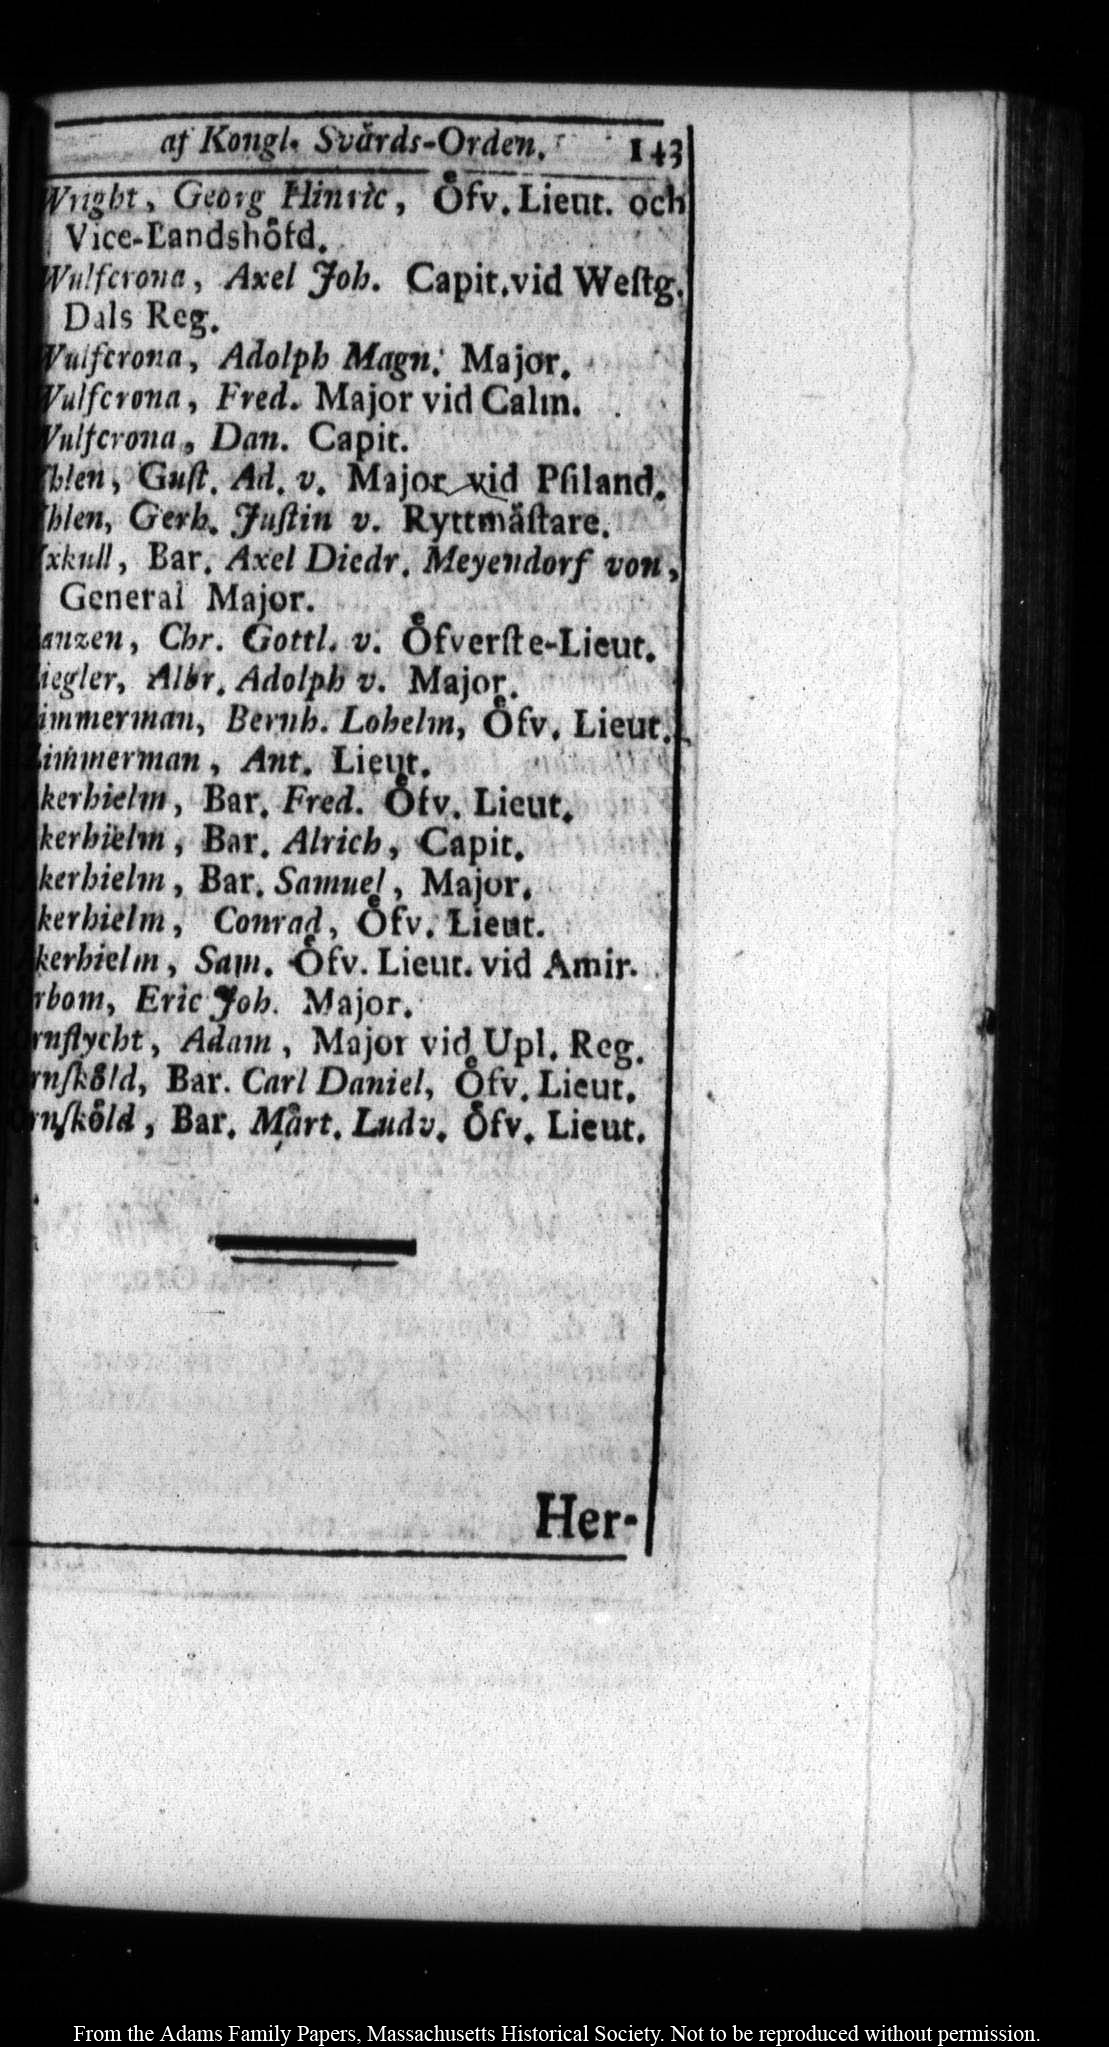 af Kongl. Svårds-Orden. 143
Wright, Georg Hinric, Öfv. Lieut. och
Vice-Landshöfd.
Wulfcrona, Axel Joh. Capit. vid Weſtg.
Dals Reg.
Wulfcrona, Adolph Magn. Major.
Wulfcrona, Fred. Major vid Calm.
Wulfcrona, Dan. Capit.
hlen, Guſt. Ad. v. Major vid Pſiland.
hlen, Gerh. Juſtin v. Ryttmäſtare.
xkull, Bar. Axel Diedr. Meyendorf von,
General Major.
anzen, Chr. Gottl. v. Öfverſte-Lieut.
iegler, Albr. Adolph v. Major.
immerman, Bernh. Lohelm, Öfv. Lieut.
immerman, Ant. Lieut.
kerhielm, Bar. Fred. Öfv. Lieut.
kerhielm, Bar. Alrich, Capit.
kerhielm, Bar. Samuel, Major.
kerhielm, Conrad, Öfv. Lieut.
kerhielm, Sam. Öfv. Lieut. vid Amir.
rbom, Eric Joh. Major.
rnflycht, Adam, Major vid Upl. Reg.
rnſköld, Bar. Carl Daniel, Öfv. Lieut.
Örnſköld, Bar. Mårt. Ludv. Öfv. Lieut.
Her-
From the Adams Family Papers, Massachusetts Historical Society. Not to be reproduced without permission.